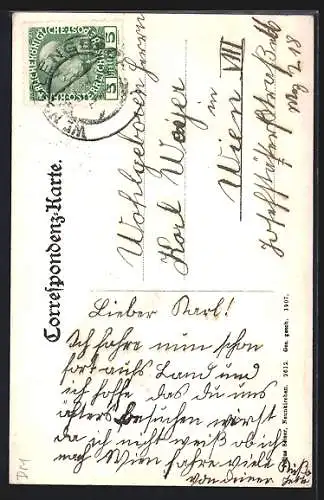 Correspondenz-Karte.
5
Wohlgeboren Herrn
Karl
in
Wien VIII
Josefstädterstraße
Lieber Karl!
Ich fahre nun schon
fort aufs Land und
ich hoffe das du uns
öfters besuchen wirst
da ich nicht weiß ob ich
nach Wien fahre viele
von deiner
Neunkirchen. 2612. Ges. gesch. 1907.